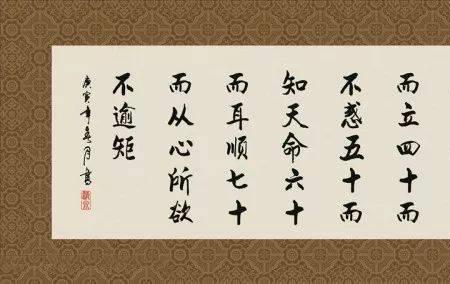 而立四十而
不惑五十而
知天命六十
而耳順七十
而从心所欲
不逾矩
庚寅年月書